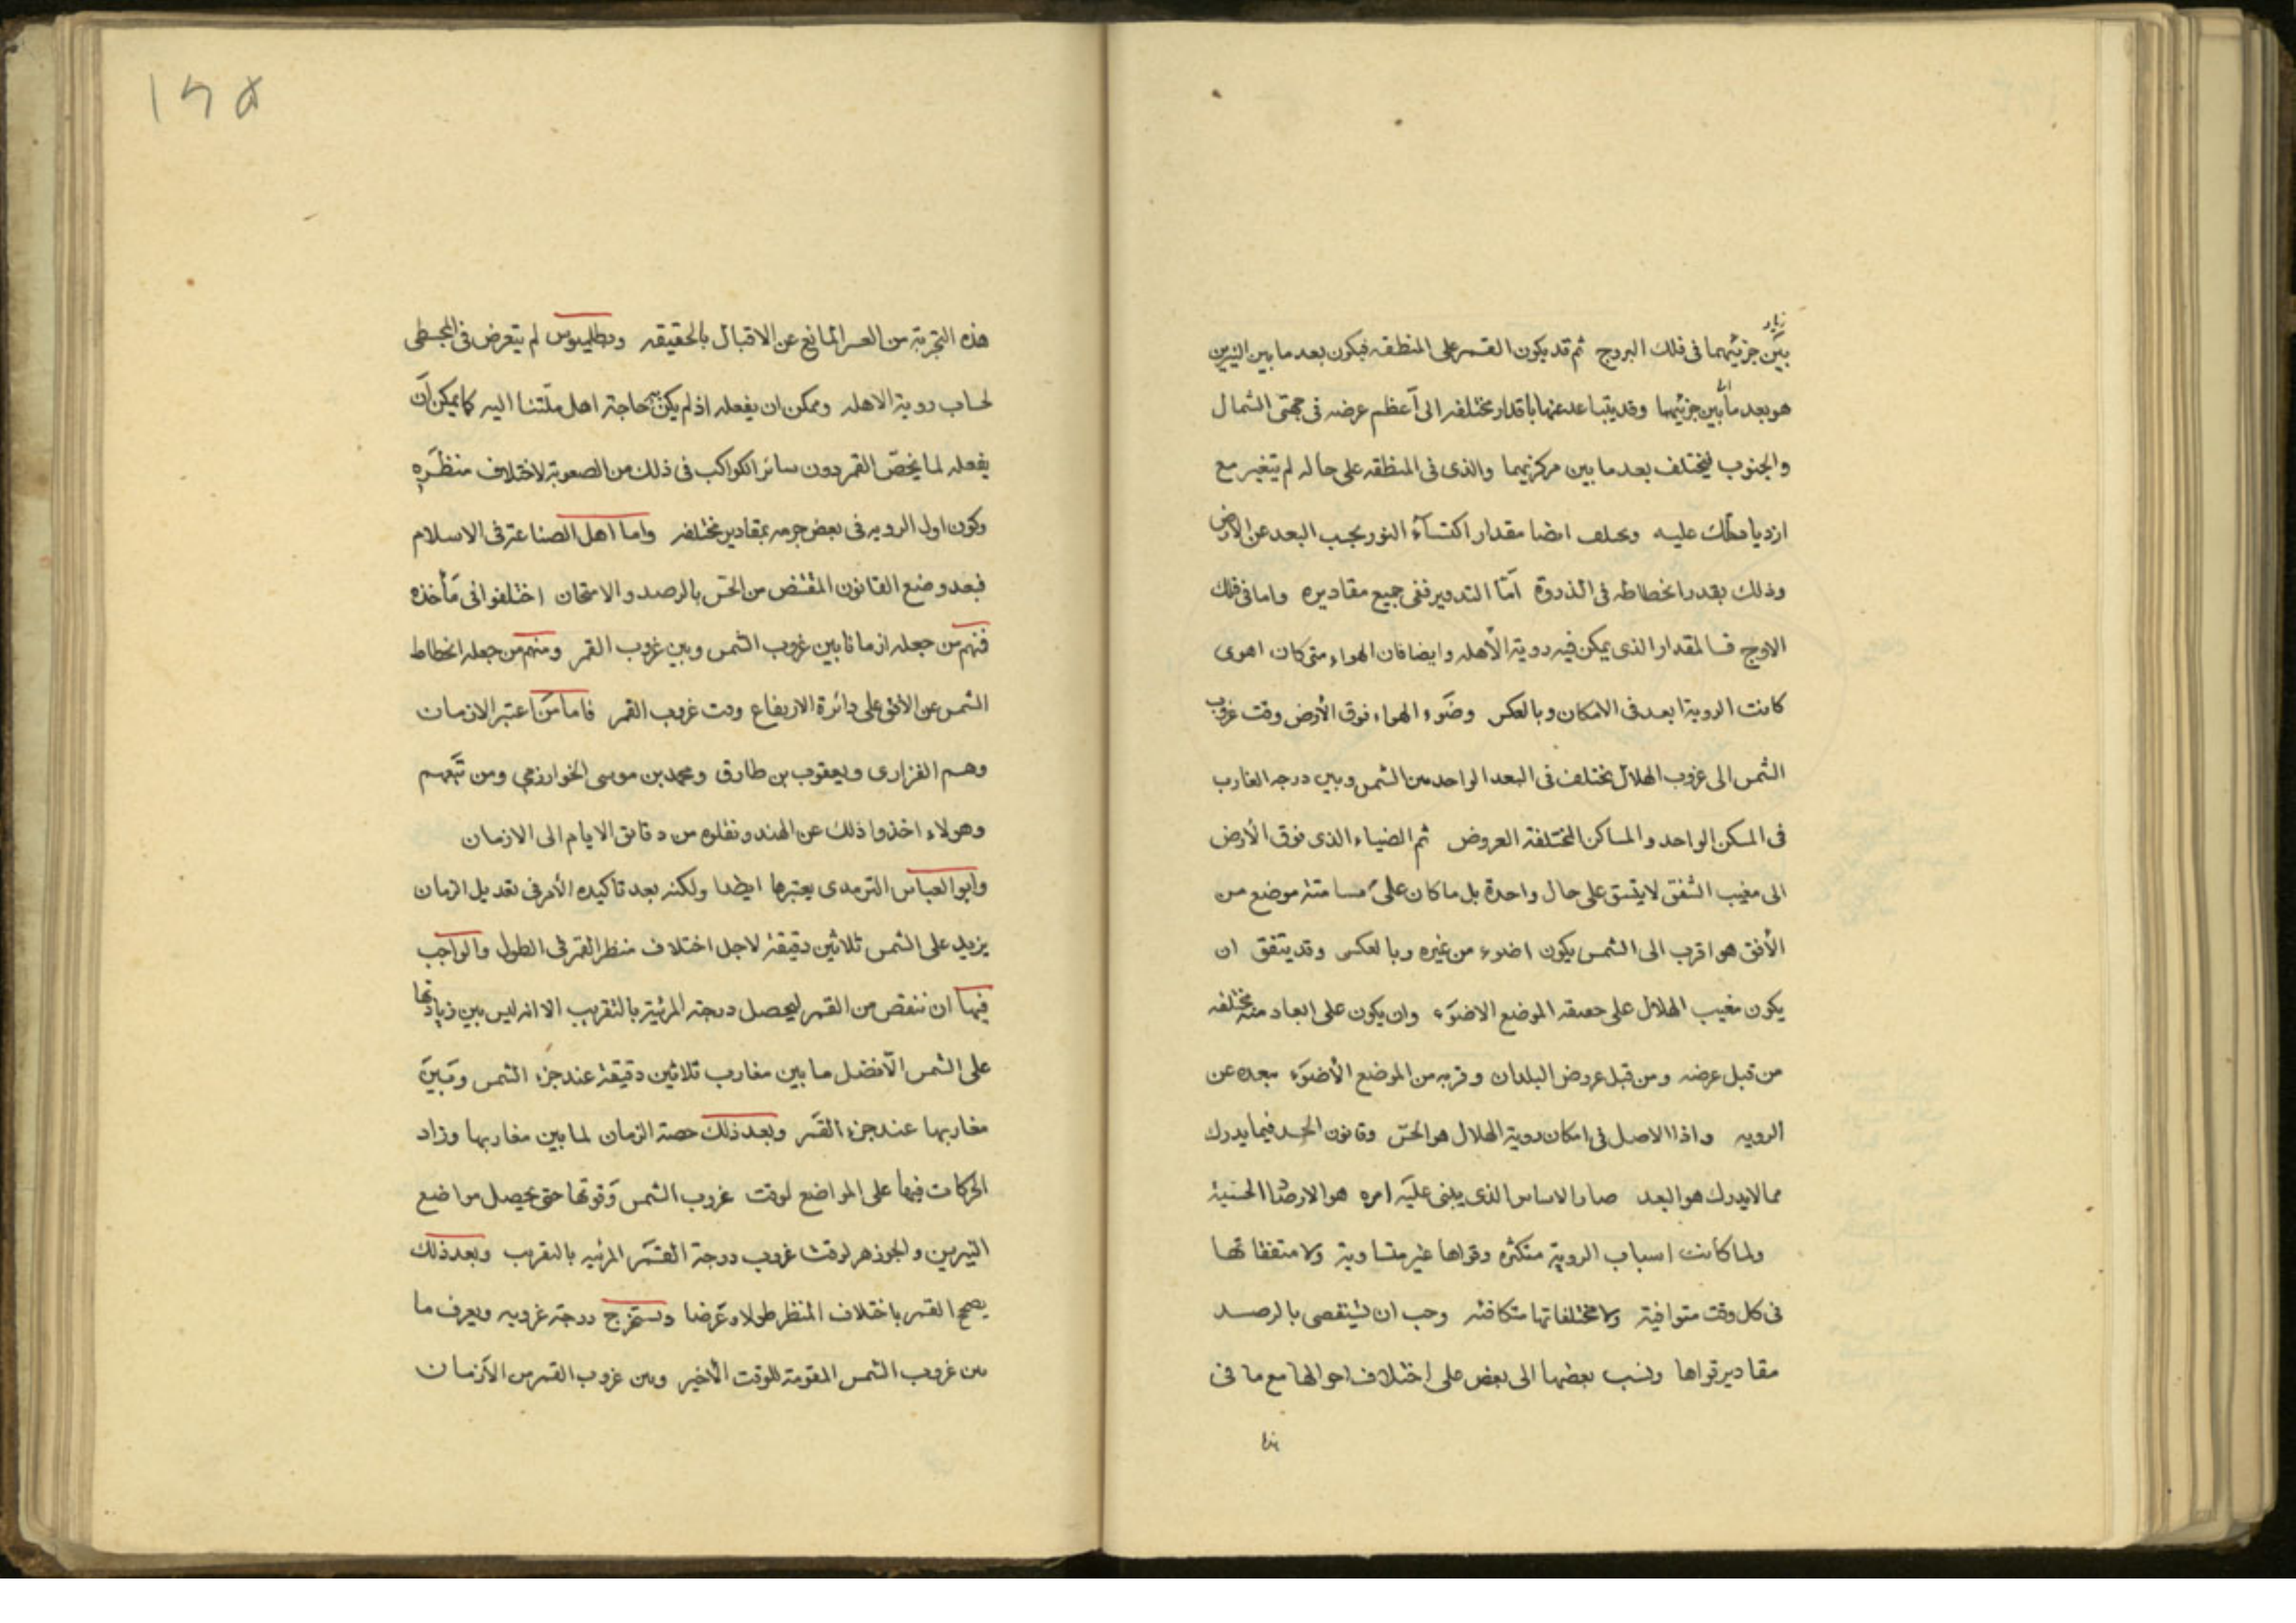 زياد
بين جزئيهما فى فلك البروج ثم قد يكون القمر على المنطقه فيكون بعد ما بين النيرين
هو بعد ما بين جزئيهما وقد يتباعد عنها باقدار مختلفه الى أعظم عرضه فى جهتى الشمال
والجنوب فيختلف بعد ما بين مركزيهما والذى فى المنطقه على حاله لم يتغير مع
ازدياد ذلك عليه ويختلف ايضا مقدار اكتساء النور بحسب البعد عن الارض
وذلك بقدر انحطاطه فى الذروة أمّا التدوير ففى جميع مقاديره واما فى فلك
الاوج فالمقدار الذى يمكن فيه روية الأهله وايضا فان الهواء متى كان اهوى
كانت الروية ابعد فى الامكان وبالعكس وضوء الهواء فوق الأرض وقت غروب
الشمس الى غروب الهلال يختلف فى البعد الواحد من الشمس وبين درجه الغارب
فى المسكن الواحد والمساكن المختلفة العروض ثم الضياء الذى فوق الأرض
الى مغيب الشفق لا يتسق على حال واحدة بل ما كان على مسامتة موضع من
الأفق هو اقرب الى الشمس يكون اضوء من غيره وبالعكس وقد يتفق ان
يكون مغيب الهلال على حقيقه الموضع الاضوء وان يكون على ابعاد منه مختلفه
من قبل عرضه ومن قبل عروض البلدان وقربه من الموضع الأضوء مبعده عن
الرويه واذا الاصل فى امكان روية الهلال هو الحس وقانون الحس فيما يدرك
مما لا يدرك هو البعد صار الاساس الذى يبنى عليه امره هو الارصاد الحسية
ولما كانت اسباب الروية متكثره وقواها غير متساوية ولا متفقاتها
فى كل وقت متوافية ولا مختلفاتها متكافئه وجب ان يستقصى بالرصد
مقادير قواها ونسب بعضها الى بعض على اختلاف احوالها مع ما فى
هذه
١٦٥
هذه التجربة من العسر المانع عن الاقبال بالحقيقه وبطليموس لم يتعرض فى المجسطى
لحساب روية الاهله وممكن ان يفعله اذ لم يكن به حاجة اهل ملّتنا اليه كما يمكن أن
يفعله لما يخصّ القمر دون سائر الكواكب فى ذلك من الصعوبة لاختلاف منظره
وكون اول الرويه فى بعض جرمه بمقادير مختلفه واما اهل الصناعة فى الاسلام
فبعد وضع القانون المقتض من الحسّ بالرصد والامتحان اختلفوا فى مأخذه
فمنهم من جعله ازمانا بين غروب الشمس وبين غروب القمر ومنهم من جعله انحطاط
الشمس عن الأفق على دائرة الارتفاع وقت غروب القمر فاما من اعتبر الازمان
وهم الفزارى ويعقوب بن طارق ومحمد بن موسى الخوارزمي ومن تبعهم
وهولاء اخذوا ذلك عن الهند ونقلوه من دقائق الايام الى الازمان
وابو العباس الترمدى يعتبرها ايضا ولكنه بعد تاكيده الأمر فى تعديل الزمان
يزيد على الشمس ثلاثين دقيقة لاجل اختلاف منظر القمر فى الطول والواجب
فيها ان ننقص من القمر ليحصل درجته المرئية بالتقريب الا انه ليس بين زيادتها
على الشمس الا فضل ما بين مغارب ثلاثين دقيقة عند جزء الشمس وبين
مغاربها عند جزء القمر وبعد ذلك حصة الزمان لما بين مغاربها وزاد
الحركات فيها على المواضع لوقت غروب الشمس وقوتها حتى يحصل مواضع
النيرين والجوزهر لوقت غروب درجة القمر المرئيه بالتقريب وبعد ذلك
يصحح القمر باختلاف المنظر طولا وعرضا ويستخرج درجة غروبه ويعرف ما
بين غروب الشمس المقومة للوقت الأخير وبين غروب القمر من الأزمان